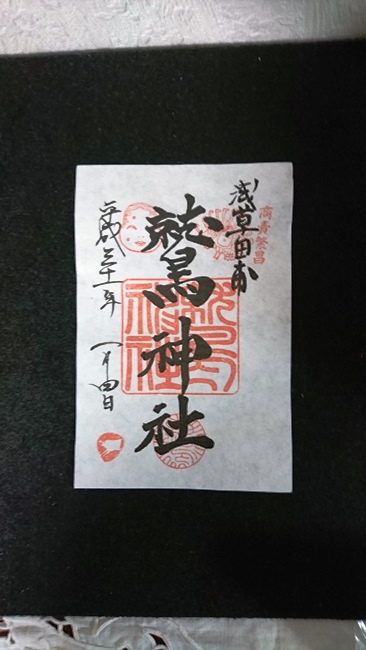 商賣繁昌
浅草田甫
鷲神社
鷲神社
平成三十一年 一月四日